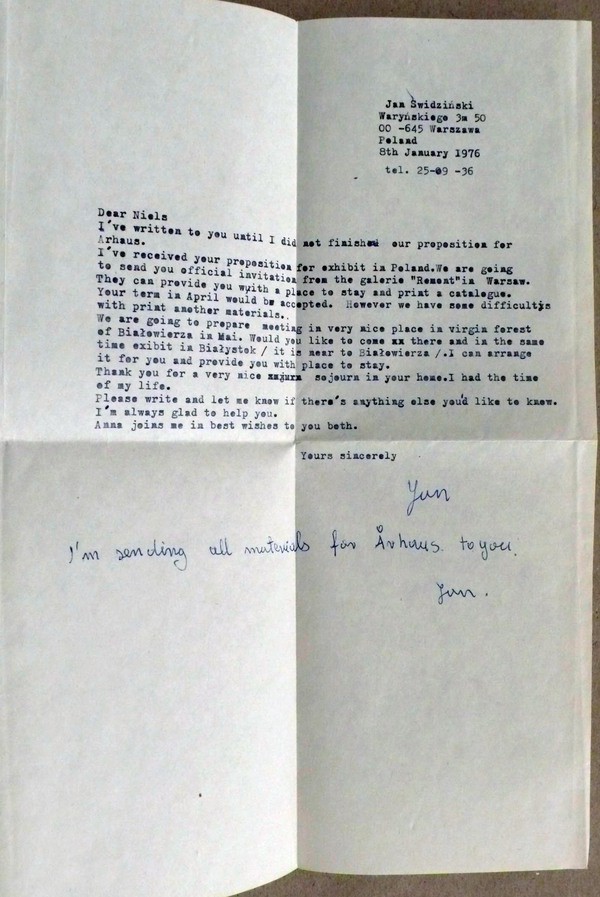 Jan Swidziński
Waryńskiego 3m 50
00 -645 Warszawa
Poland
8th January 1976
tel. 25-09 -36
Dear Niels
I've written to you until I did not finished our proposition for
Arhaus.
I've received your proposition for exhibit in Poland.We are going
to send you official invitation from the galerie "Remont"in Warsaw.
They can provide you wyith a place to stay and print a catalogue.
Your term in April would be accepted. However we have some difficultjs
with print another materials.
We are going to prepare meeting in very nice place in virgin forest
of Białowierza in Mai. Would you like to come xx there and in the same
time exibit in Białystok / it is near to Białowierza /.I can arrange
it for you and provide you with place to stay.
Thank you for a very nice sojourn in your home.I had the time
of my life.
Please write and let me know if there's anything else you'd like to know.
I'm always glad to help you.
Anna joins me in best wishes to you both.
Yours sincerely
Jan
I'm sending all materials for Århaus to you.
Jan.